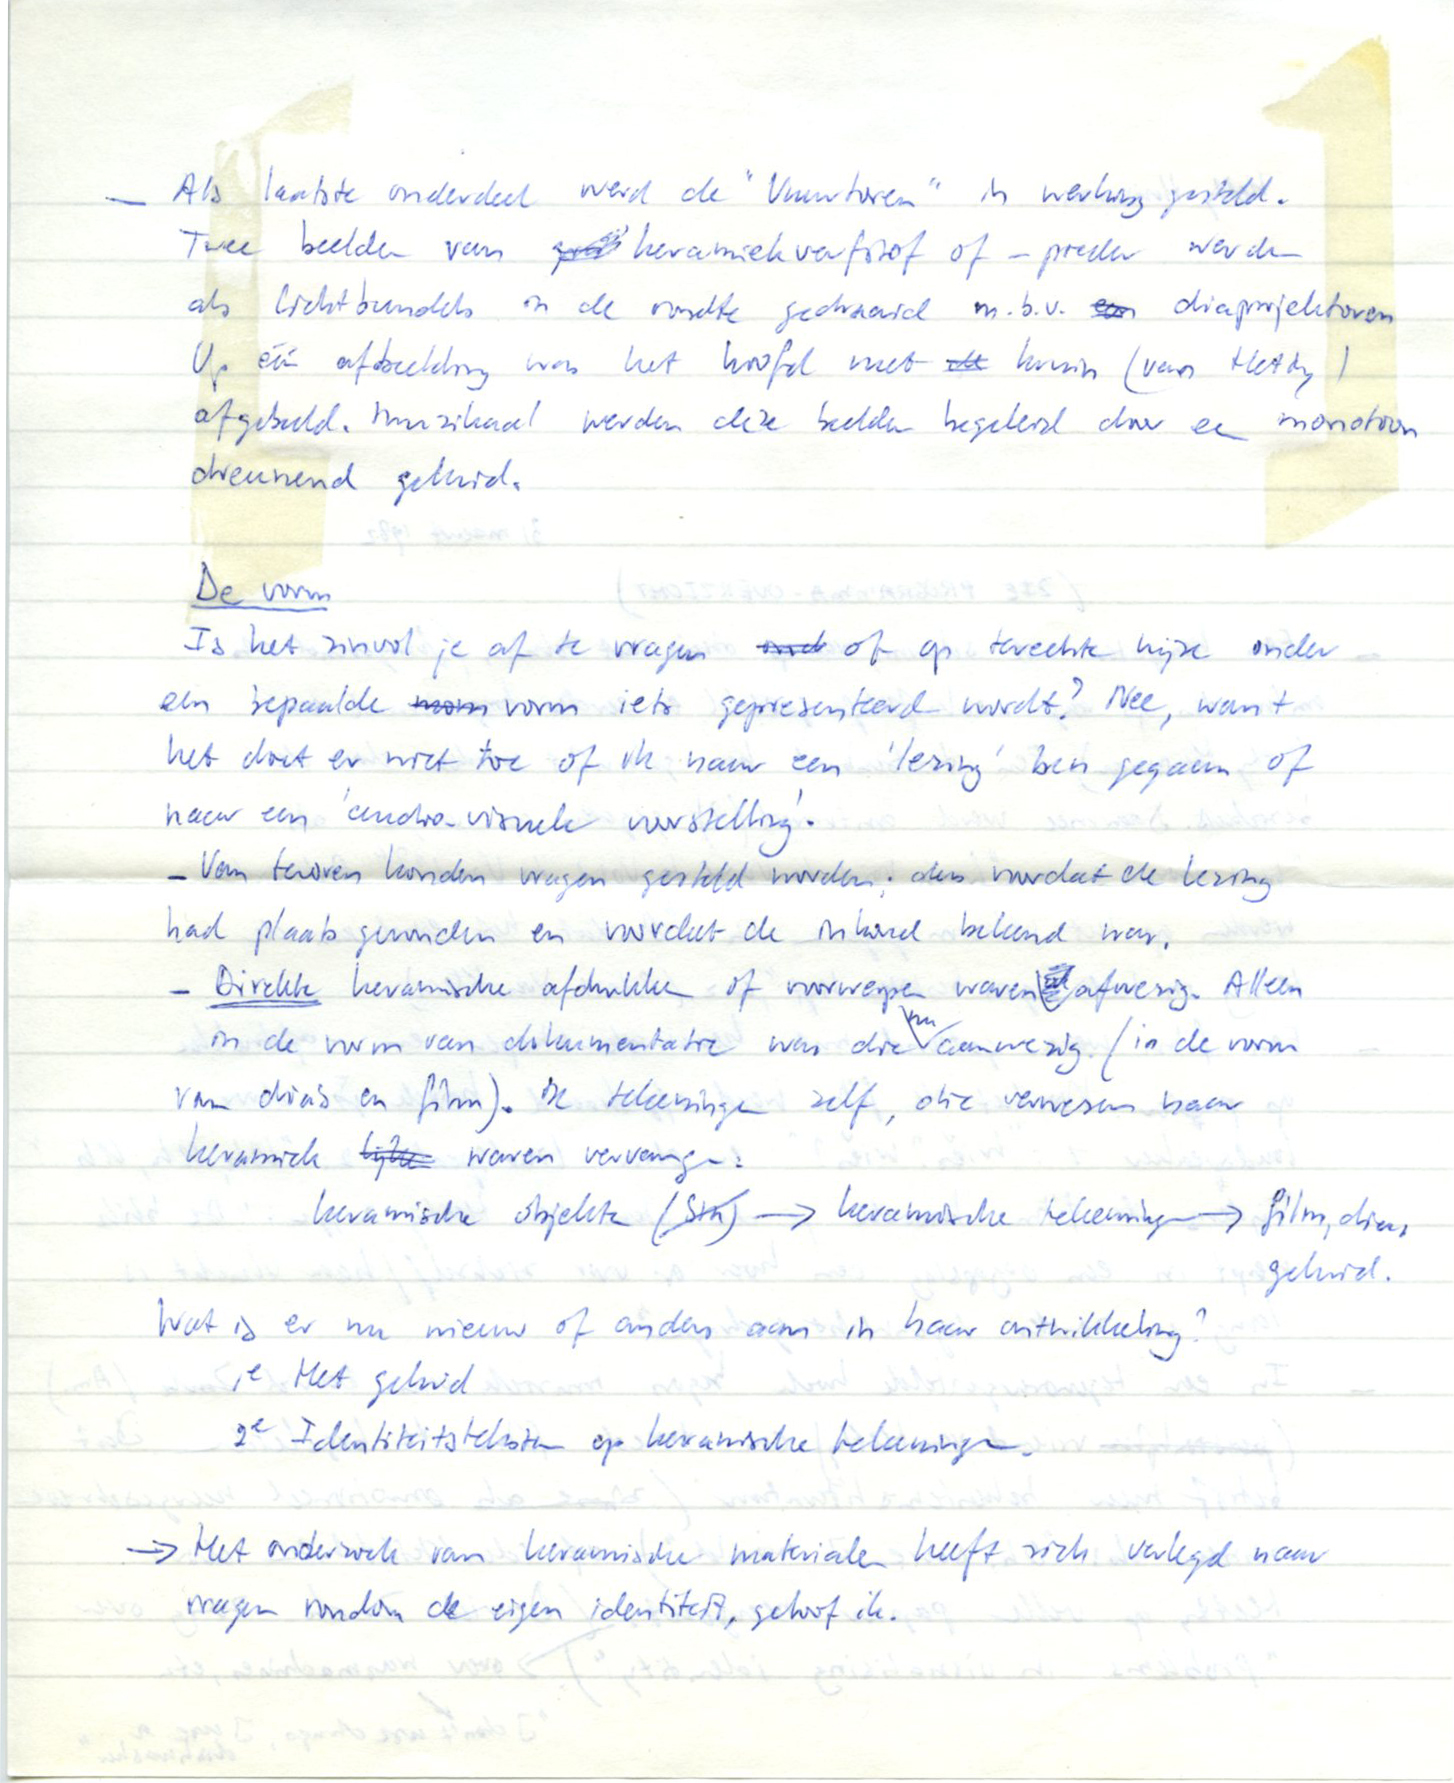 — Als laatste onderdeel werd de "Vuurtoren" in werking gesteld.
Twee beelden van keramiekverfstof of - preder werden
als lichtbundels in de rondte gedraaid m.b.v. een diaprojektoren
Op één afbeelding was het hoofd met kruin (van Hetty)
afgebeeld. Muzikaal werden deze beelden begeleid door een monotoon
dreunend geluid.
De vorm
Is het zinvol je af te vragen of op terechte wijze onder
een bepaalde vorm iets gepresenteerd wordt? Nee, want
het doet er niet toe of ik naar een 'lezing' ben gegaan of
naar een 'audio-visuele voorstelling'.
- Van tevoren konden vragen gesteld worden; dus voordat de lezing
had plaats gevonden en voordat de inhoud bekend was.
- Direkte keramische afdrukken of voorwerpen waren afwezig. Alleen
in de vorm van dokumentatie was die nu aanwezig. (in de vorm
van dia's en film). De tekeningen zelf, die verwezen naar
keramiek waren vervangen:
keramische objekten → keramische tekeningen → film, dias,
geluid.
Wat is er nu nieuw of anders aan in haar ontwikkeling?
1e Het geluid
2e Identiteitsteksten op keramische tekeningen.
→ Het onderzoek van keramische materialen heeft zich verlegd naar
vragen rondom de eigen identiteit, geloof ik.